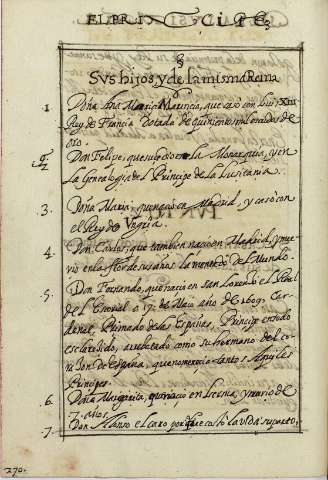 EL PRINCIPE
Sus hijos y de la misma Reina
1. Doña Ana Maria Mauricia, que casó con Luis XIII
Rey de Francia Dotada de quinientos mil escudos de
oro.
2 Don Felipe, que sucedio en la Monarquia, y en
la Genealogia del Principe de la Lusitania.
3. Doña Maria, que nacio en Madrid, y casó con
el Rey de Ungria.
4. Don Carlos, que tambien nacio en Madrid, y mu
rio en la flor de sus años
del Mundo.
5. Don Fernando, que nacio en san Lorenzo el Real
del Escorial a 17. de Maio año de 1609. Car
denal, Primado de las Españas, Principe en todo
esclarecido, como su hermano del
de España, que no merecia tantos
Principes
6. Doña Margarita, que nacio en Lerma, y murio de
7. años.
7. Don Alonso el caro porque costó la vida su parto,
270.